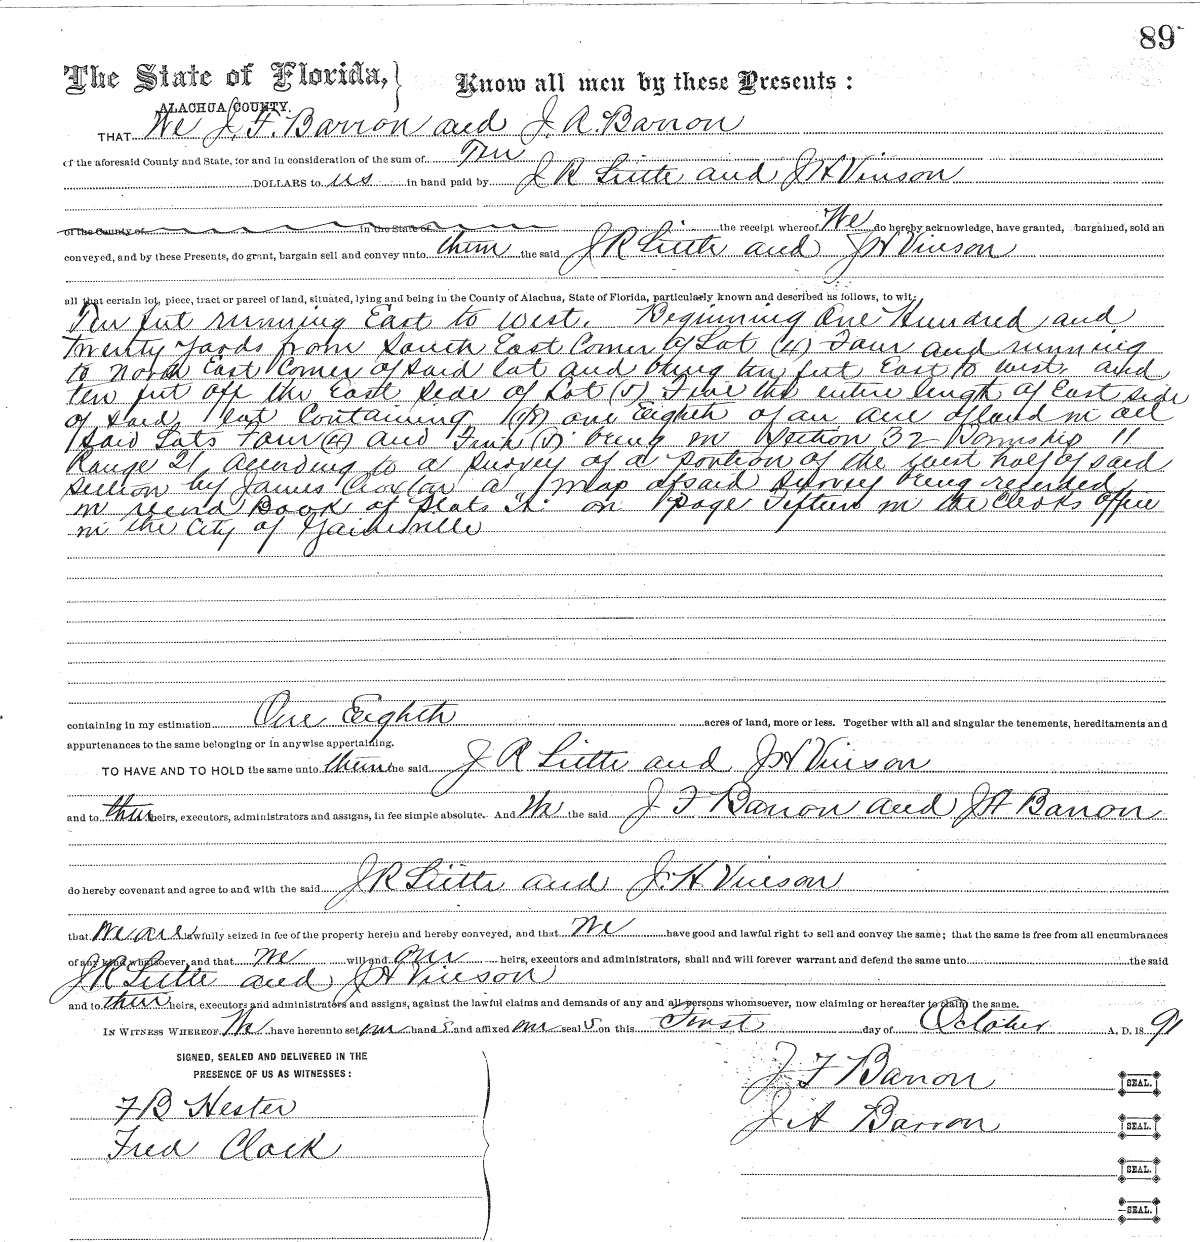 89
The State of Florida,
Know all men by these Presents :
ALACHUA COUNTY.
THAT We J. F. Barron and J. A. Barron
of the aforesaid County and State, for and in consideration of the sum of Ten
DOLLARS to us in hand paid by J R Little and J H Vinson
of the County of in the State of the receipt whereof We do hereby acknowledge, have granted, bargained, sold an
conveyed, and by these Presents, do grant, bargain sell and convey unto them the said J R Little and J H Vinson
all that certain lot, piece, tract or parcel of land, situated, lying and being in the County of Alachua, State of Florida, particularly known and described as follows, to wit:
Ten feet running East to West. Beginning One Hundred and
Twenty yards from South East Corner of Lot (4) Four and running
to North East Corner of said lot and being ten feet East to west. and
ten feet off the East side of Lot (5) Five the entire length of East side
of said lot Containing (1/8) one Eighth of an acre of land in all
Said Lots Four (4) and Five (5) being in Section 32 Township 11
Range 21, According to a Survey of a portion of the west half of said
Section by James Croxton a map of said survey being recorded
in record Book of Plats "A" on page Fifteen in the Clerks office
in the City of Gainesville
containing in my estimation One Eighth acres of land, more or less. Together with all and singular the tenements, hereditaments and
appurtenances to the same belonging or in anywise appertaining.
TO HAVE AND TO HOLD the same unto them the said J R Little and J H Vinson
and to their heirs, executors, administrators and assigns, in fee simple absolute. And We the said J F Barron and J A Barron
do hereby covenant and agree to and with the said J R Little and J. H. Vinson
that We are lawfully seized in fee of the property herein and hereby conveyed, and that We have good and lawful right to sell and convey the same; that the same is free from all encumbrances
of any kind whatsoever, and that We will and our heirs, executors and administrators, shall and will forever warrant and defend the same unto the said
J R Little and J H Vinson
and to their heirs, executors and administrators and assigns, against the lawful claims and demands of any and all persons whomsoever, now claiming or hereafter to claim the same.
IN WITNESS WHEREOF, We have hereunto set our hand s and affixed our seal s on this First day of October A. D. 18 91
SIGNED, SEALED AND DELIVERED IN THE
PRESENCE OF US AS WITNESSES :
J F Barron SEAL.
F B Hester
J A Barron SEAL.
Fred Clark
SEAL.
SEAL.